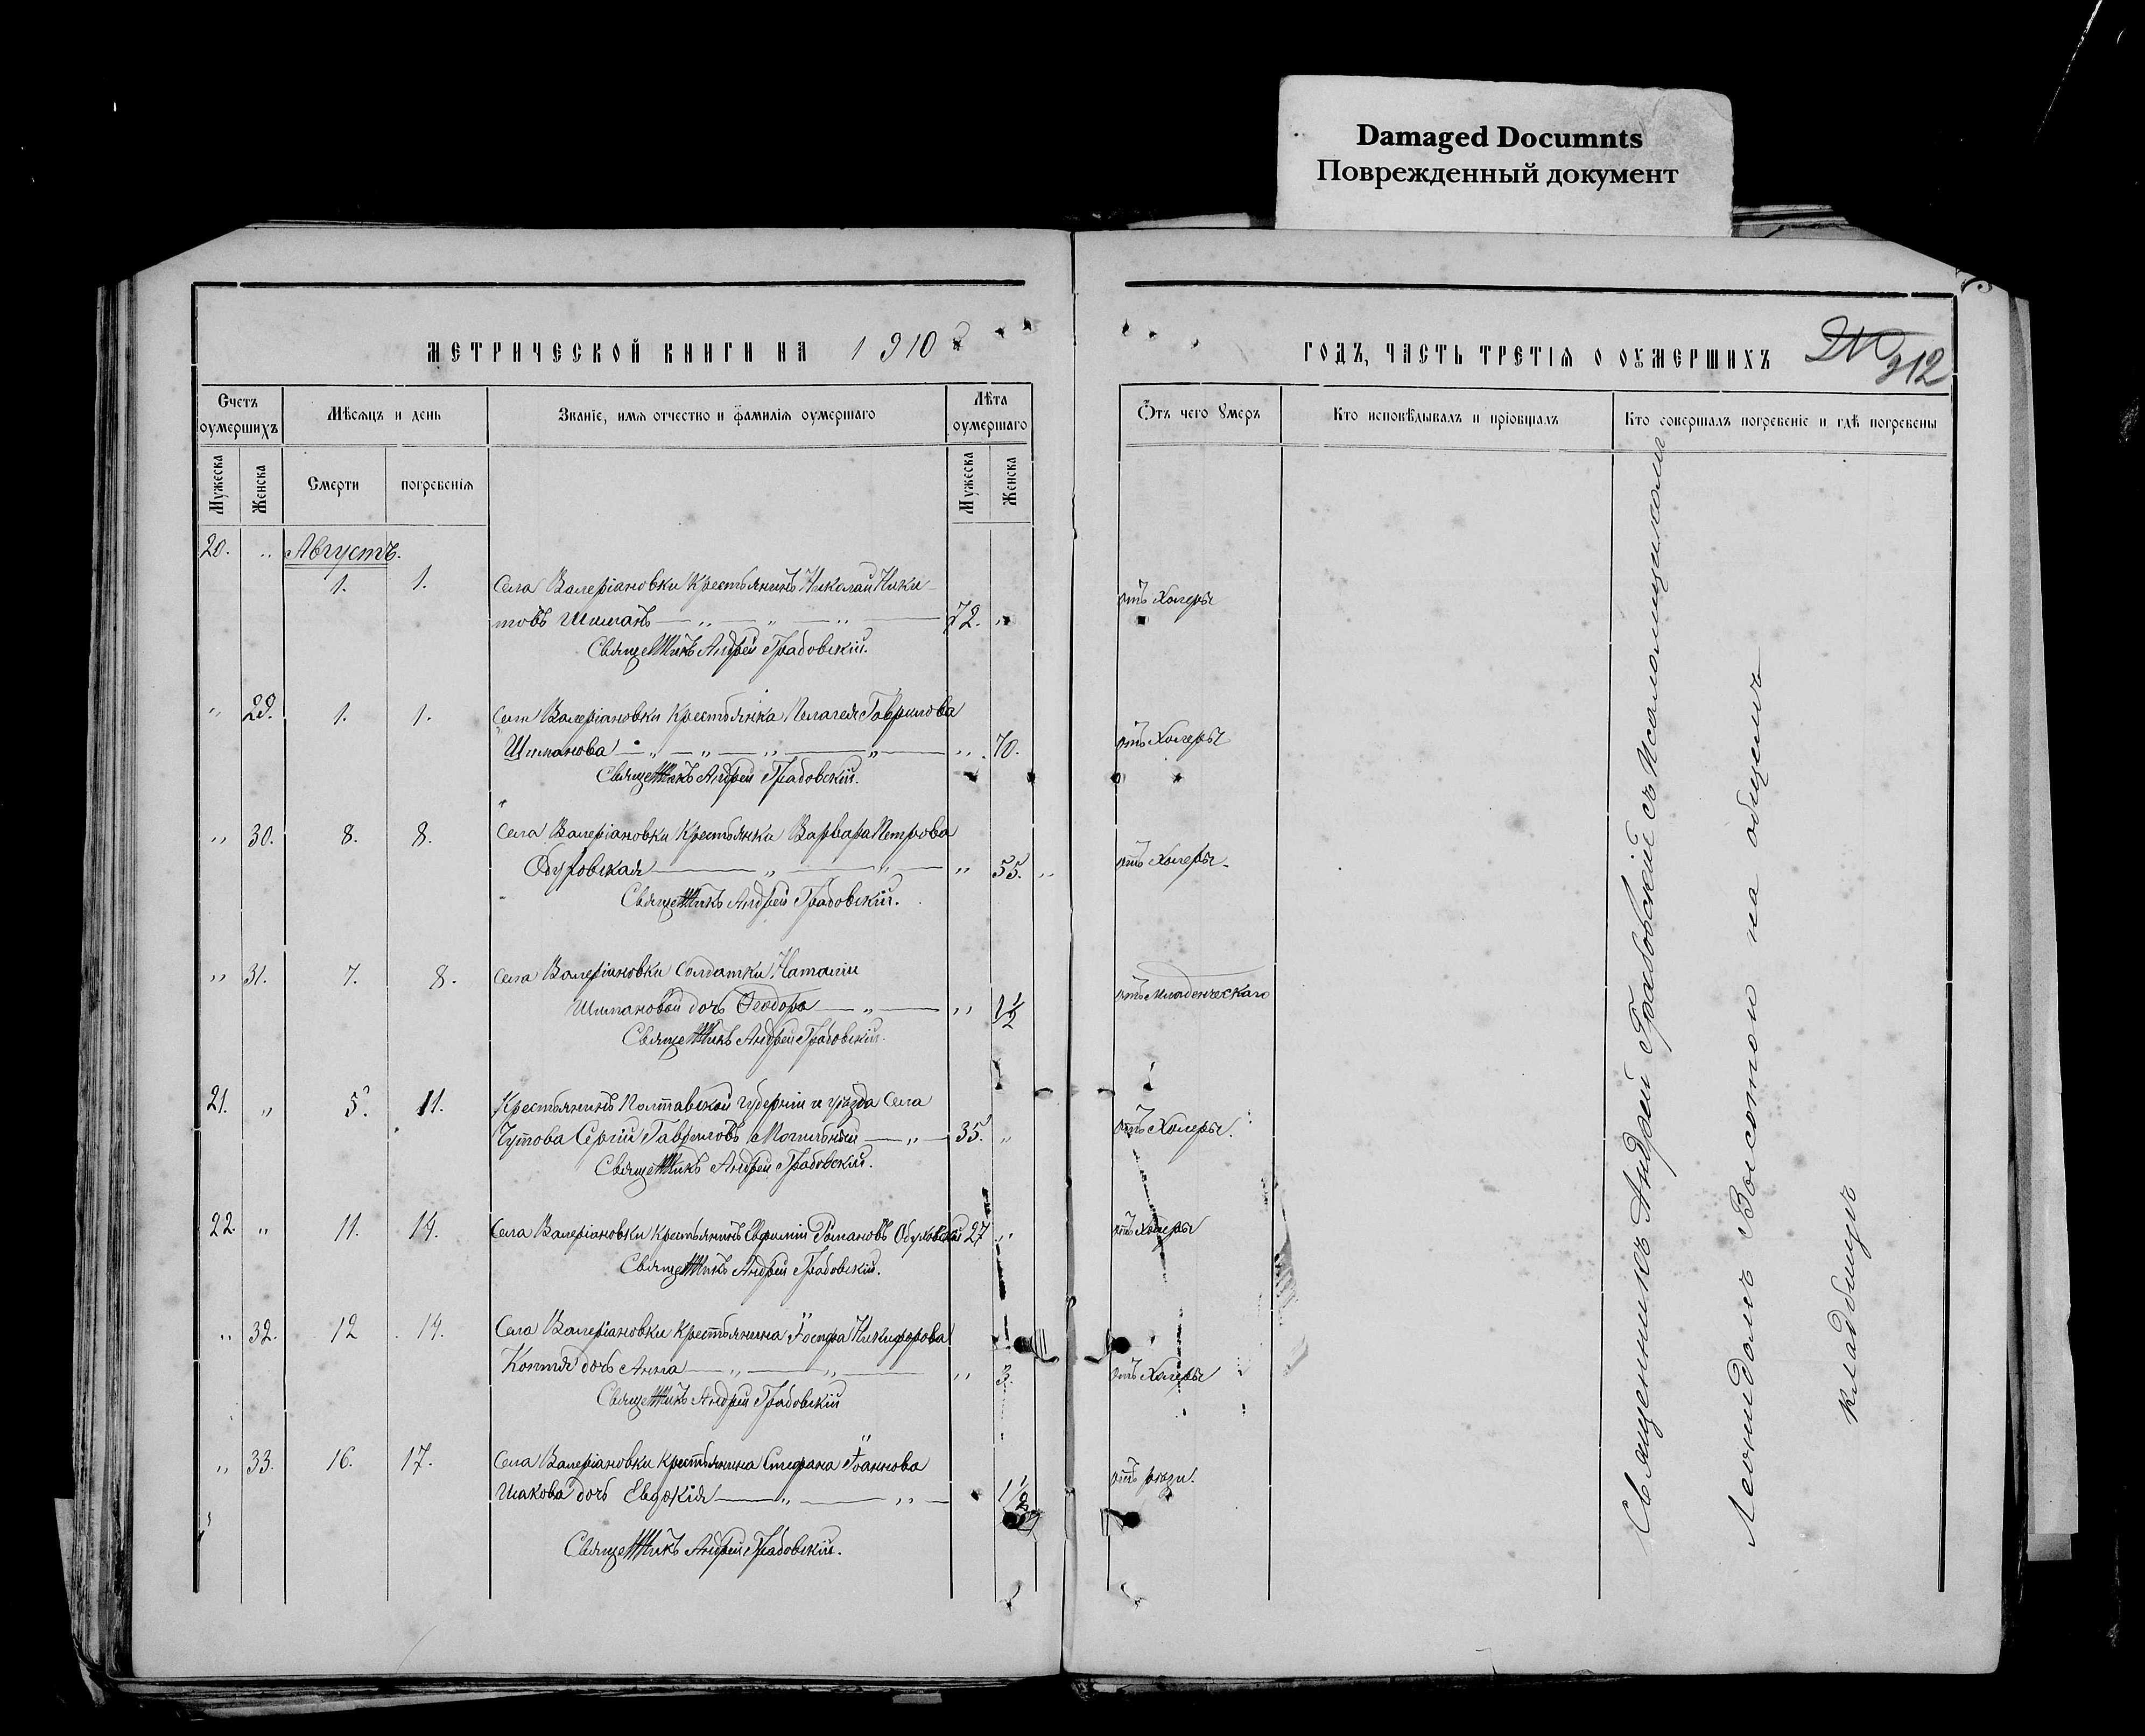 Damaged Documnts
Поврежденный документ
МЕТРИЧЕСКОЙ КНИГИ НА 1910
ГОДЪ, ЧАСТЬ ТРЕТІЯ О ОУМЕРШИХЪ
212
Счетъ оумершихъ
Мѣсяцъ и день
Званіе, имя отчество и фамилія оумершаго
Лѣта оумершаго
Отъ чего Умеръ
Кто исповѣдывалъ и пріобщалъ
Кто совершалъ погребеніе и гдѣ погребены
Мужеска
Женска
Смерти
погребенія
Мужеска
Женска
20. " Августъ.
1. 1. Села Валеріановки Крестьянинъ Николай Ники
товъ Шиманъ 72. " отъ Холеры
Священникъ Андрей Грабовскій.
" 29. 1. 1. Села Валеріановки Крестьянка Пелагея Гаврилова
Шиманова " 70. отъ Холеры
Священникъ Андрей Грабовскій.
" 30. 8. 8. Села Валеріановки Крестьянка Варвара Петрова
" 55. отъ Холеры.
Священникъ Андрей Грабовскій.
" 31. 7. 8. Села Валеріановки Солдатки Наталіи
Шимановой дочь Ѳеодора " 1 1/2 отъ Младенческаго
Священникъ Андрей Грабовскій.
21. " 5. 11. Крестьянинъ Полтавской губерніи и уѣзда Села
Чутова Сергій Гавриловъ Могильный 35. " отъ Холеры.
Священникъ Андрей Грабовскій.
22. " 11. 14. Села Валеріановки Крестьянинъ Евфимій Романовъ 27 " отъ Холеры
Священникъ Андрей Грабовскій.
" 32. 12 14. Села Валеріановки Крестьянина Іосифа Никифорова
дочь Анна " 3. отъ Холеры
Священникъ Андрей Грабовскій
" 33. 16. 17. Села Валеріановки Крестьянина Стефана Іоаннова
дочь Евдокія 1 1/2
Священникъ Андрей Грабовскій.
Священникъ Андрей Грабовскій съ Псаломщикомъ
Леонидомъ на общемъ
кладбищѣ